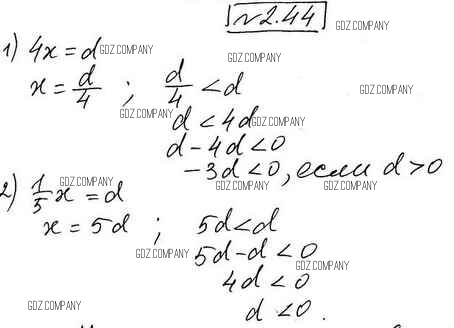 №2.44 GDZ.COMPANY
1) 4x = d GDZ.COMPANY GDZ.COMPANY
x = d/4 ; d/4 < d GDZ.COMPANY
GDZ.COMPANY d < 4d GDZ.COMPANY
d - 4d < 0
-3d < 0, если d > 0
2) 1/5 x = d GDZ.COMPANY GDZ.COMPANY GDZ.COMPANY
x = 5d ; 5d < d
GDZ.COMPANY 5d - d < 0
4d < 0 GDZ.COMPANY
GDZ.COMPANY d < 0.